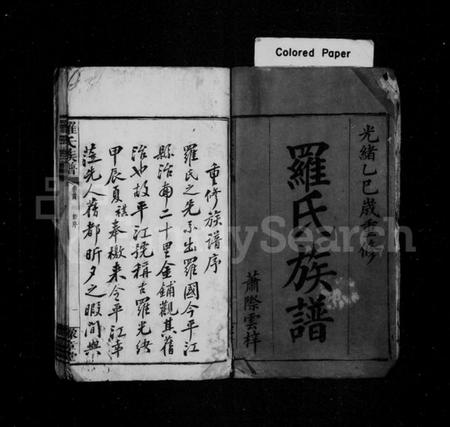 Colored Paper
光緒乙巳歲重修
羅氏族譜
蕭際雲梓
重修族譜序
羅氏之先系出羅國今平江
縣治南二十里金鋪觀其舊
治也故平江號稱古羅光緒
甲辰夏祺奉檄来令平江幸
蒞先人舊都昕夕之暇間與
羅氏族譜
FamilySearch